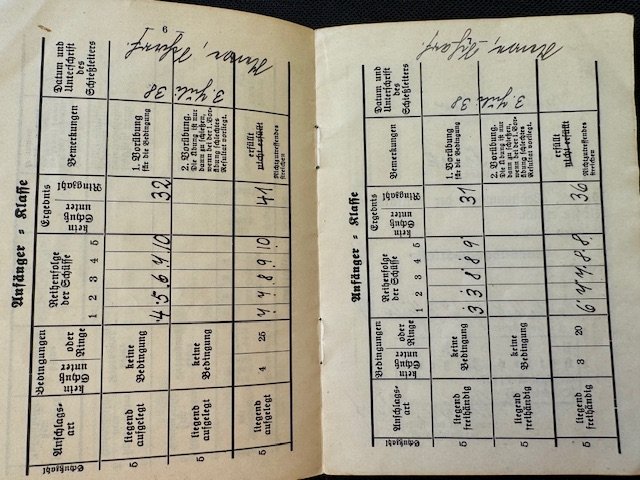 Anfänger - Klasse
Schußzahl
Anschlags-
art
Bedingungen
kein
Schuß
unter
oder
Ringe
Reihenfolge
der Schüsse
1 2 3 4 5
Ergebnis
kein
Schuß
unter
Ringzahl
Bemerkungen
Datum und
Unterschrift
des
Schießleiters
5
liegend
aufgelegt
keine
Bedingung
4 5 6 7 10
32
1. Vorübung
für die Bedingung
5
liegend
aufgelegt
keine
Bedingung
2. Vorübung.
Die Übung ist nur
dann zu schießen,
wenn bei der 1. Vor-
übung schlechtes
Resultat vorliegt.
3. Juli 38
5
liegend
aufgelegt
4 25
7 7 8 9 10
41
erfüllt
nicht erfüllt
Nichtzutreffendes
streichen
Anfänger - Klasse
Schußzahl
Anschlags-
art
Bedingungen
kein
Schuß
unter
oder
Ringe
Reihenfolge
der Schüsse
1 2 3 4 5
Ergebnis
kein
Schuß
unter
Ringzahl
Bemerkungen
Datum und
Unterschrift
des
Schießleiters
5
liegend
freihändig
keine
Bedingung
3 3 8 8 9
31
1. Vorübung
für die Bedingung
5
liegend
freihändig
keine
Bedingung
2. Vorübung.
Die Übung ist nur
dann zu schießen,
wenn bei der 1. Vor-
übung schlechtes
Resultat vorliegt.
3. Juli 38
5
liegend
freihändig
3 20
6 7 7 8 8
36
erfüllt
nicht erfüllt
Nichtzutreffendes
streichen